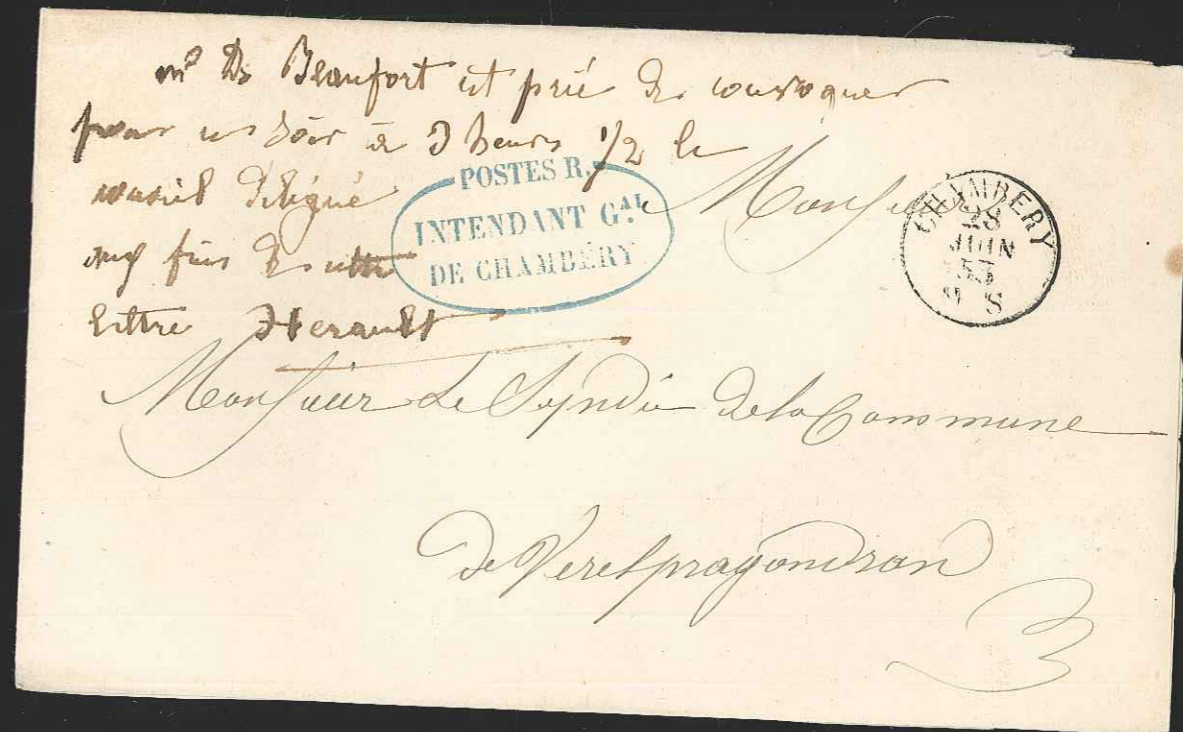 mr De Beaufort est prié de convoquer
pour ce soir à 7 heures 1/2 le
conseil délégué
aux fins de cette
lettre Herault
POSTES R.
INTENDANT GAL
DE CHAMBÉRY
CHAMBERY
28
JUIN
53
S
Monsieur
Monsieur Le Syndic de la Commune
de Verel pragondran